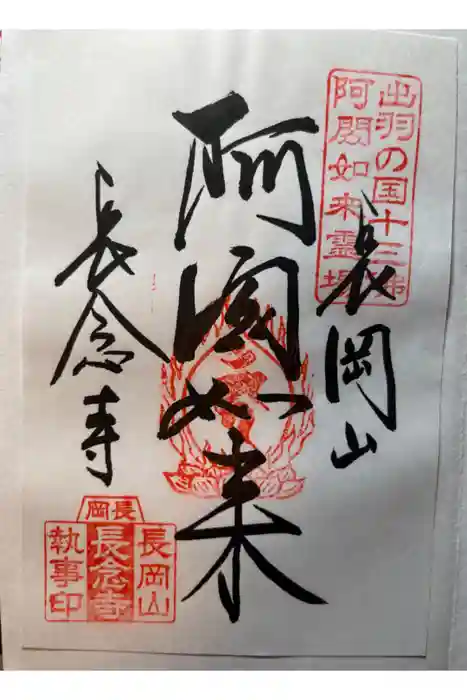 出羽の国十三佛
阿閦如来霊場
長岡山
阿閦如来
長念寺
長岡
長岡山
長念寺
執事印